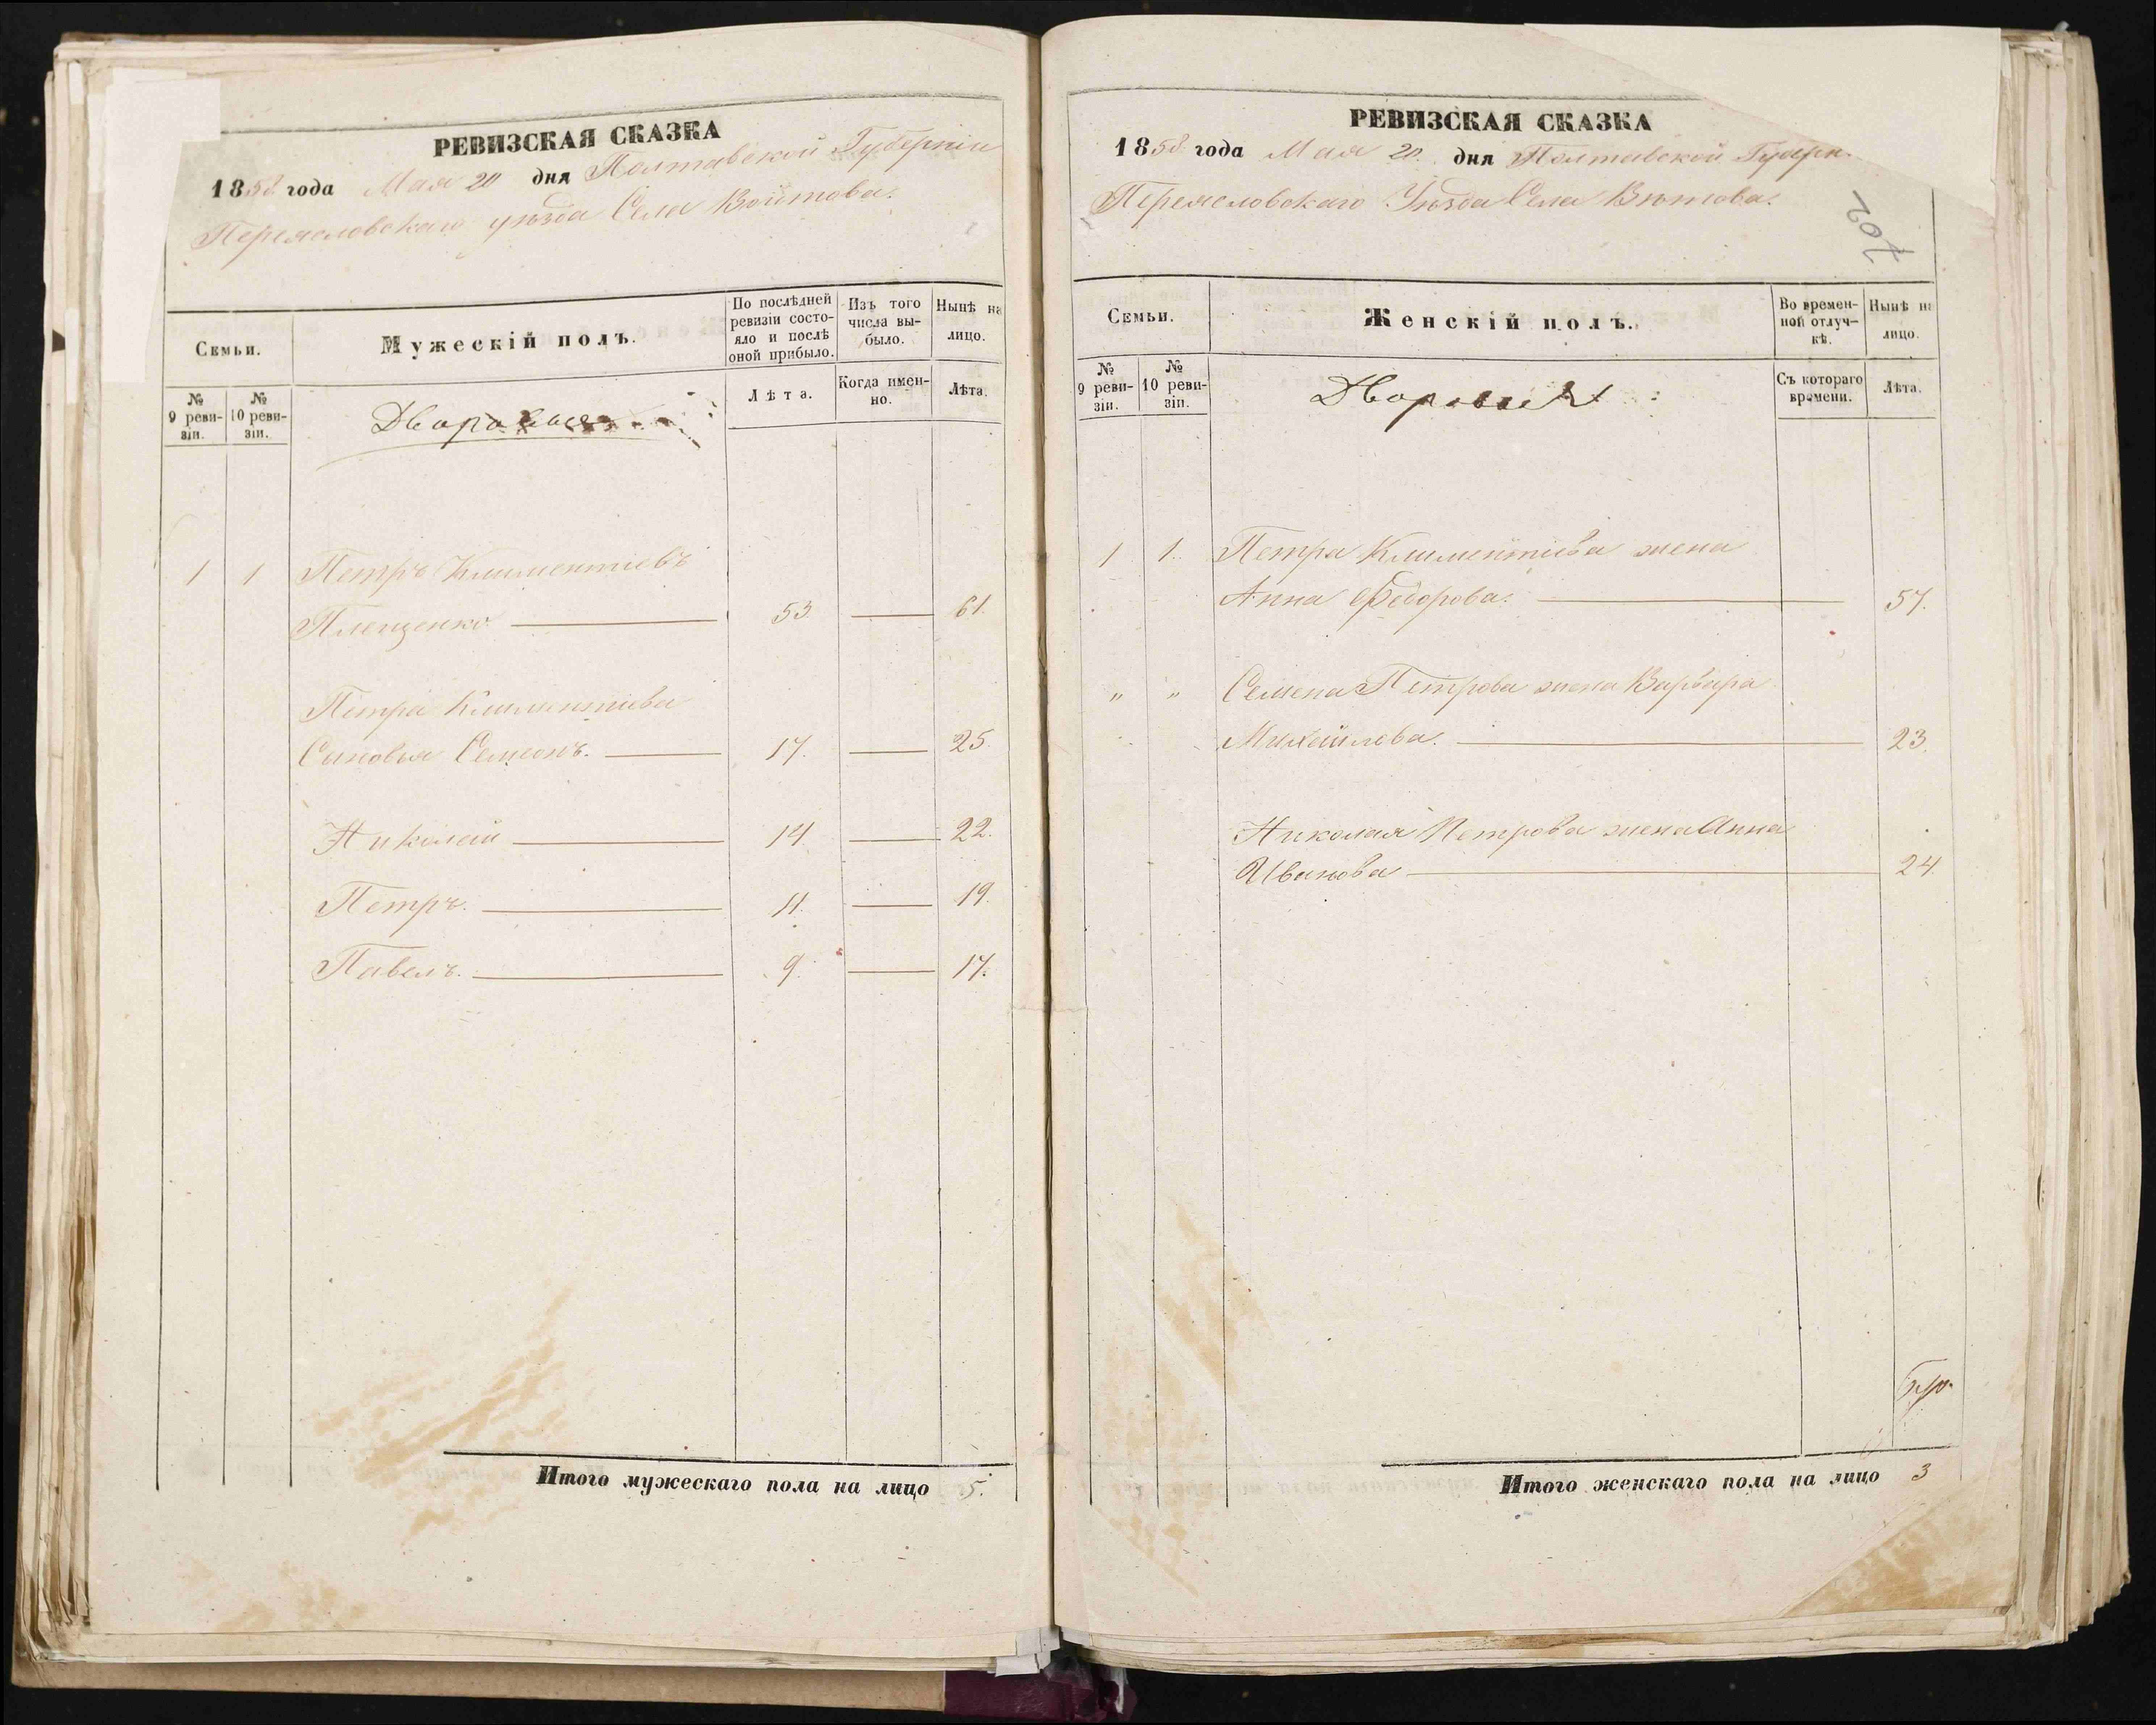 РЕВИЗСКАЯ СКАЗКА
1858 года Мая 20 дня Полтавской Губерніи
Переясловскаго уѣзда Села Войтова.
Семьи.
Мужескій полъ.
По послѣдней ревизіи состояло и послѣ оной прибыло.
Изъ того числа выбыло.
Нынѣ на лицо.
№ 9 ревизіи.
№ 10 ревизіи.
Дворовыя
Лѣта.
Когда именно.
Лѣта.
1 1 Петръ Климентіевъ
Плещенко 53. 61.
Петра Климентиева
Сыновья Семенъ. 17. 25.
Николай 14 22.
Петръ. 11. 19.
Павелъ. 9. 17.
Итого мужескаго пола на лицо 5.
РЕВИЗСКАЯ СКАЗКА
1858 года Мая 20. дня Полтавской Губерн.
Переясловскаго Уѣзда Села Вѣтова.
702
Семьи.
Женскій полъ.
Во временной отлучкѣ.
Нынѣ на лицо.
№ 9 ревизіи.
№ 10 ревизіи.
Дворовые
Съ котораго времени.
Лѣта.
1 1. Петра Климентіева жена
Анна Федорова. 57.
" " Семена Петрова жена Варвара
Михайлова. 23.
Николая Петрова жена Анна
Иванова 24.
Итого женскаго пола на лицо 3